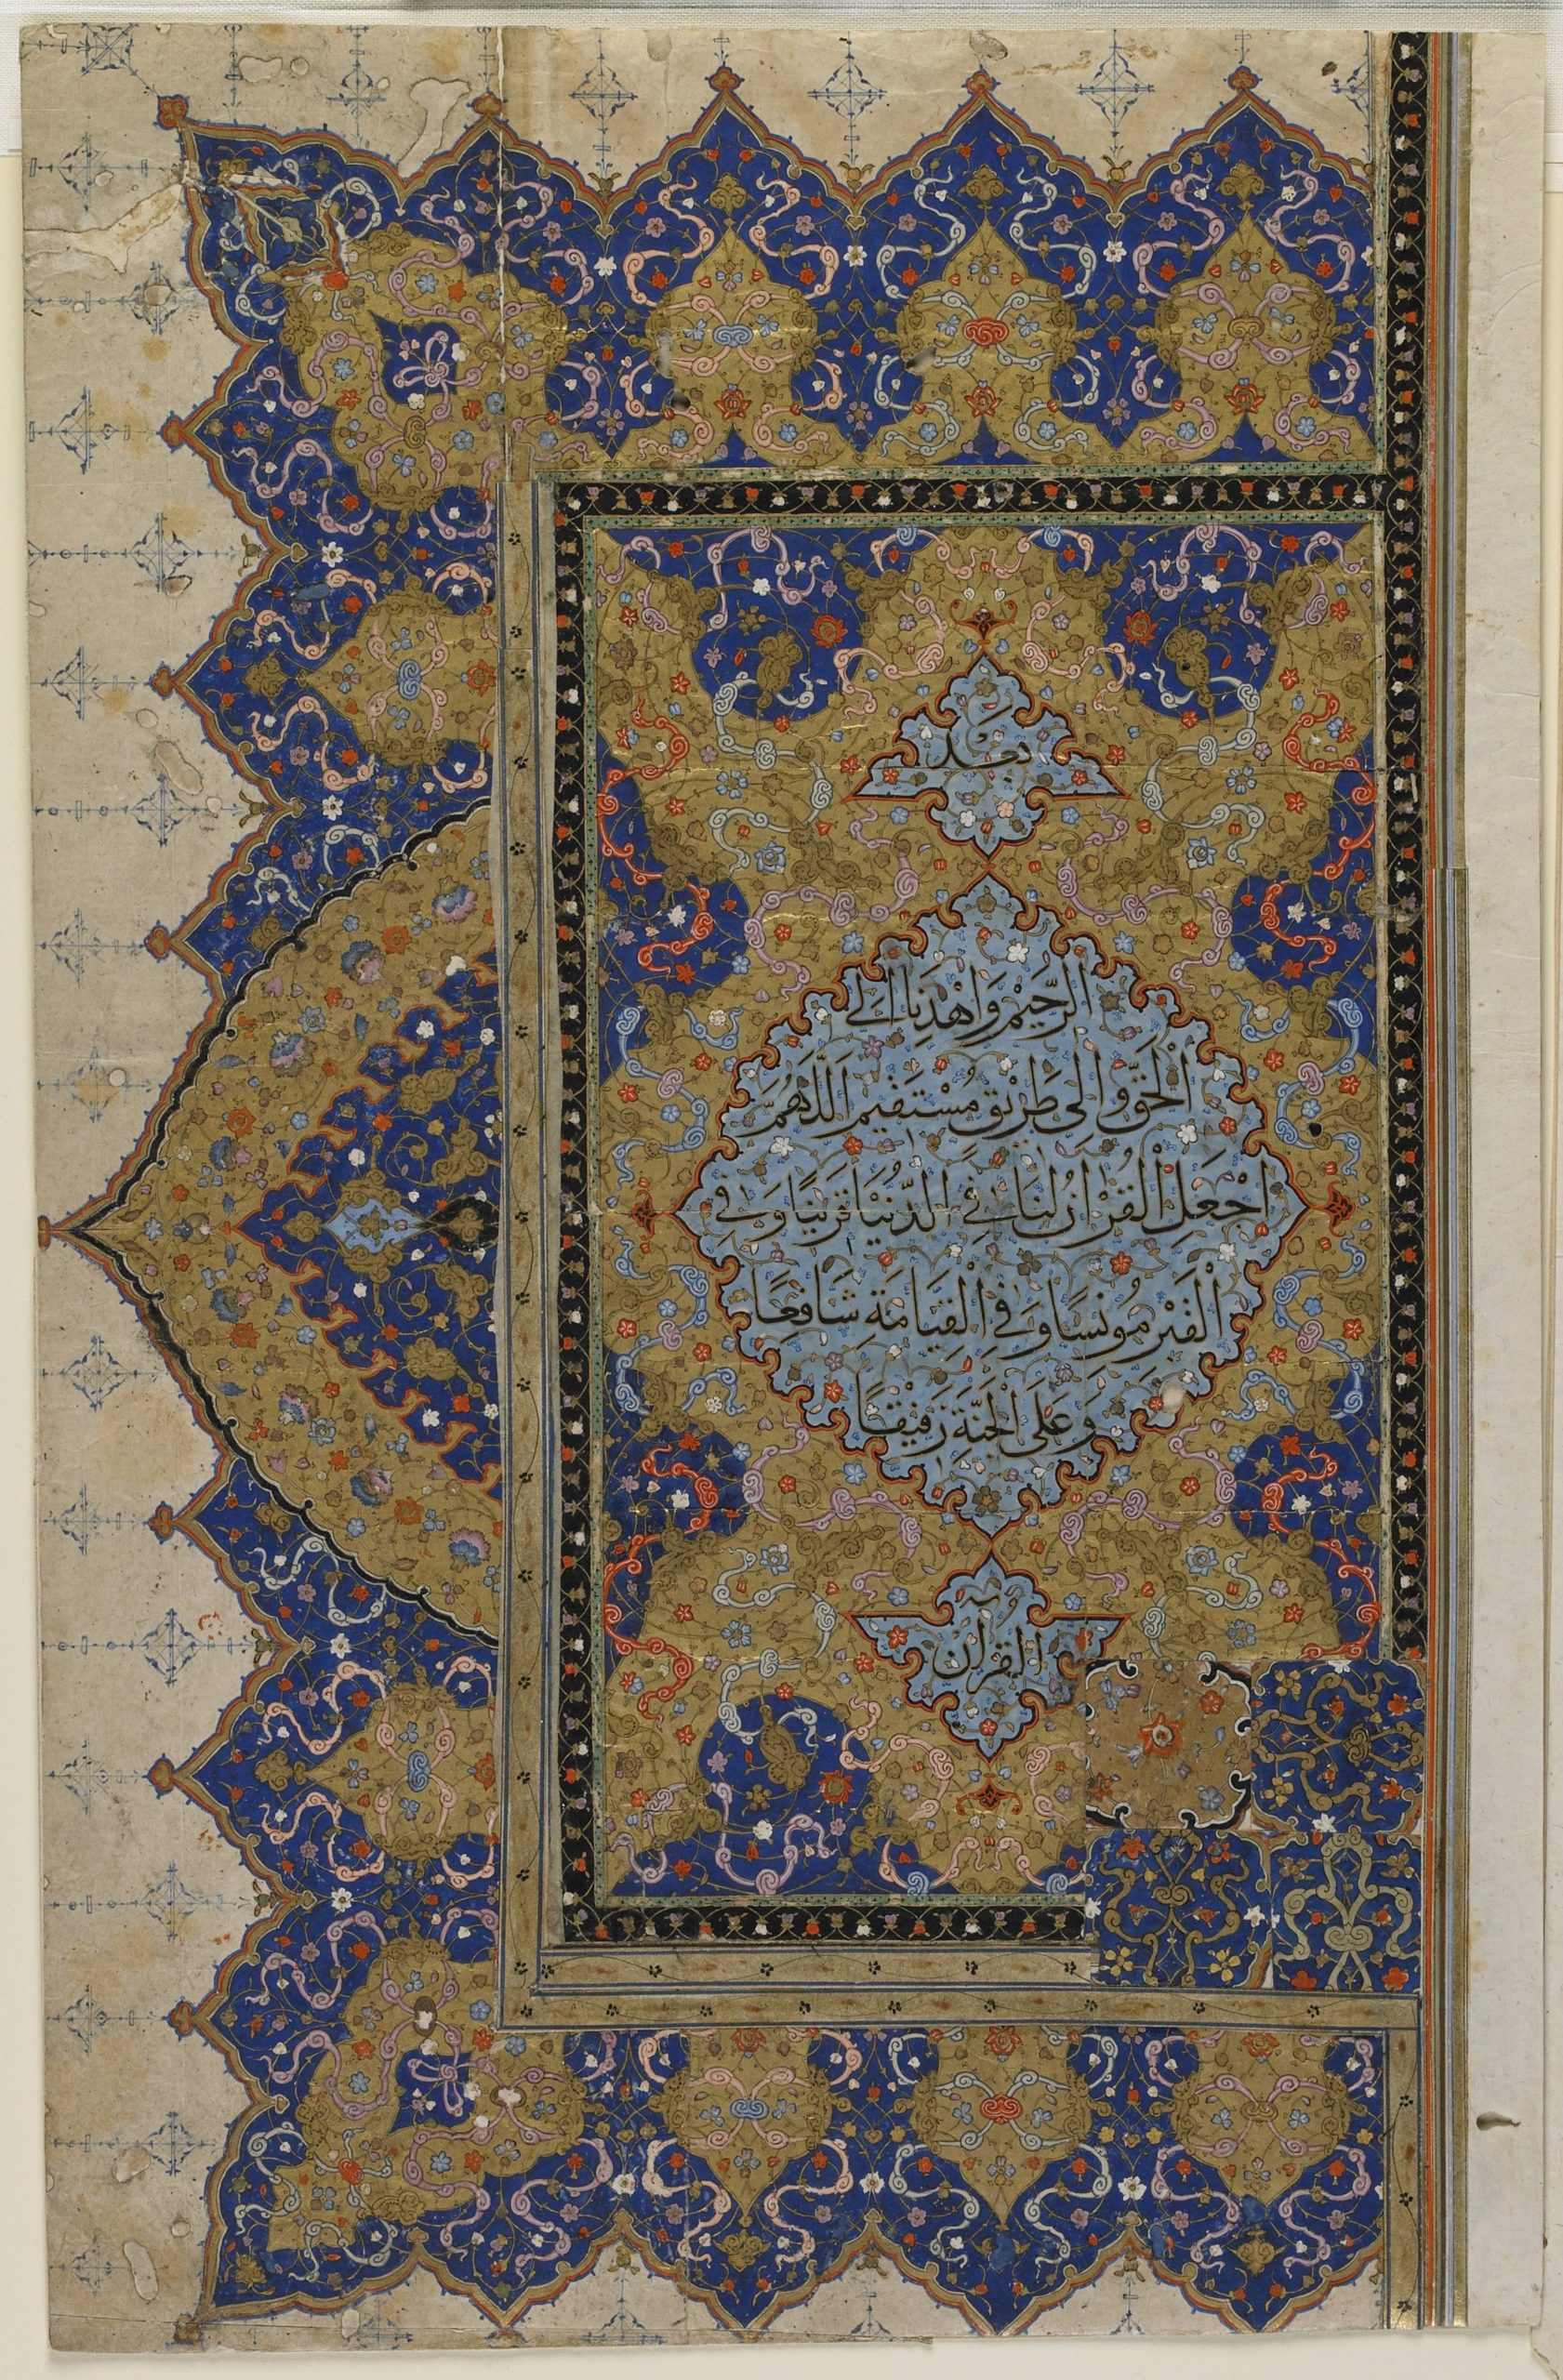 بعد
الرَّحِيْمُ وَاهْدِنَا اِلَى
الْحَقِّ وَاِلَى طَرِيْقٍ مُسْتَقِيْمٍ اَللّٰهُمَّ
اجْعَلِ الْقُرْاٰنَ لَنَا فِي الدُّنْيَا قَرِيْنًا وَفِي
الْقَبْرِ مُونِسًا وَفِي الْقِيَامَةِ شَافِعًا
وَعَلَى الْجَنَّةِ رَفِيْقًا
القران